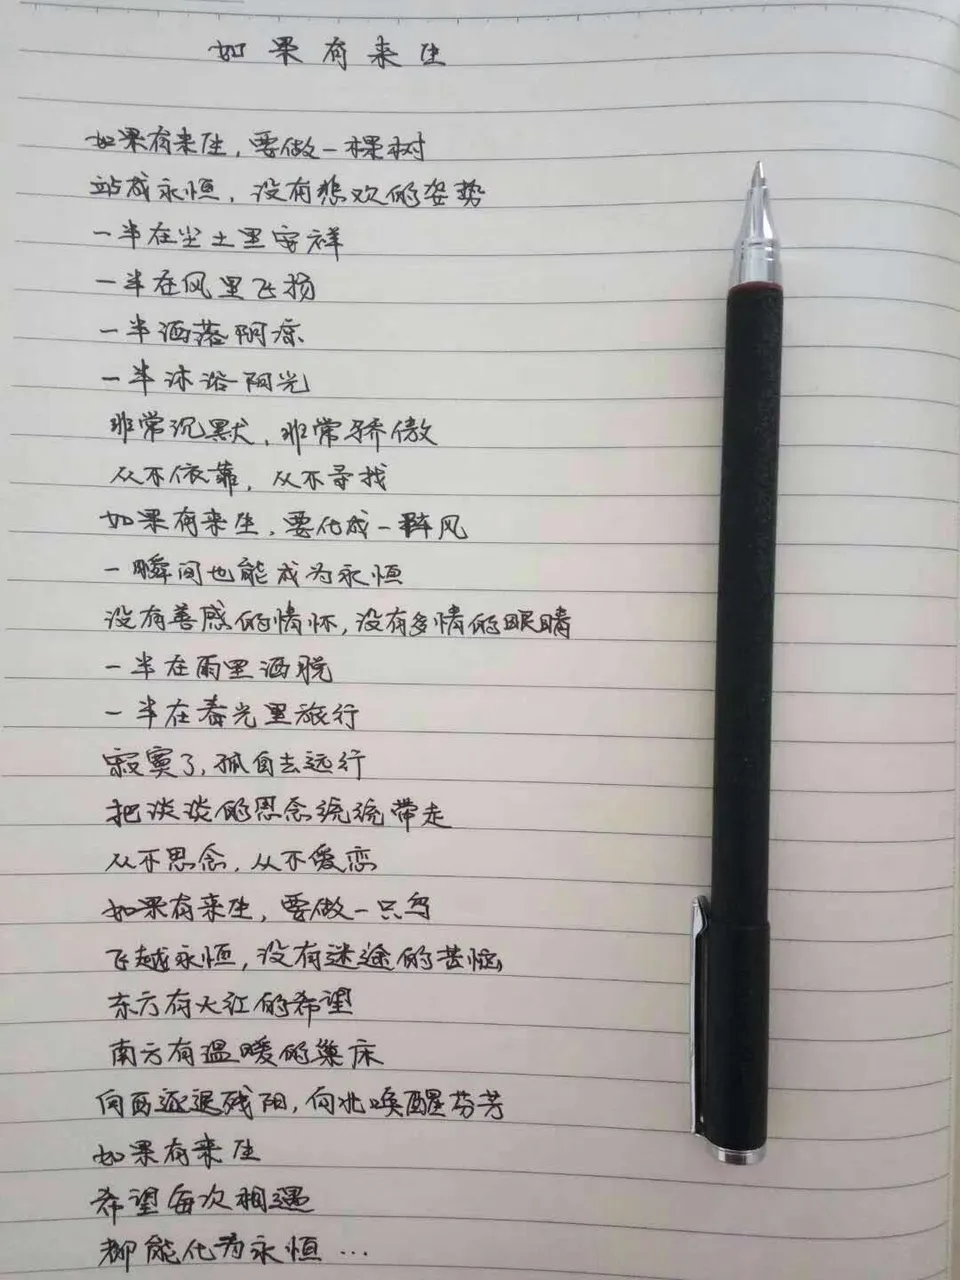 如果有来生
如果有来生，要做一棵树
站成永恒，没有悲欢的姿势
一半在尘土里安祥
一半在风里飞扬
一半洒落阴凉
一半沐浴阳光
非常沉默，非常骄傲
从不依靠，从不寻找
如果有来生，要化成一阵风
一瞬间也能成为永恒
没有善感的情怀，没有多情的眼睛
一半在雨里洒脱
一半在春光里旅行
寂寞了，孤自去远行
把淡淡的思念统统带走
从不思念，从不爱恋
如果有来生，要做一只鸟
飞越永恒，没有迷途的苦恼
东方有火红的希望
南方有温暖的巢床
向西逐退残阳，向北唤醒芬芳
如果有来生
希望每次相遇
都能化为永恒...